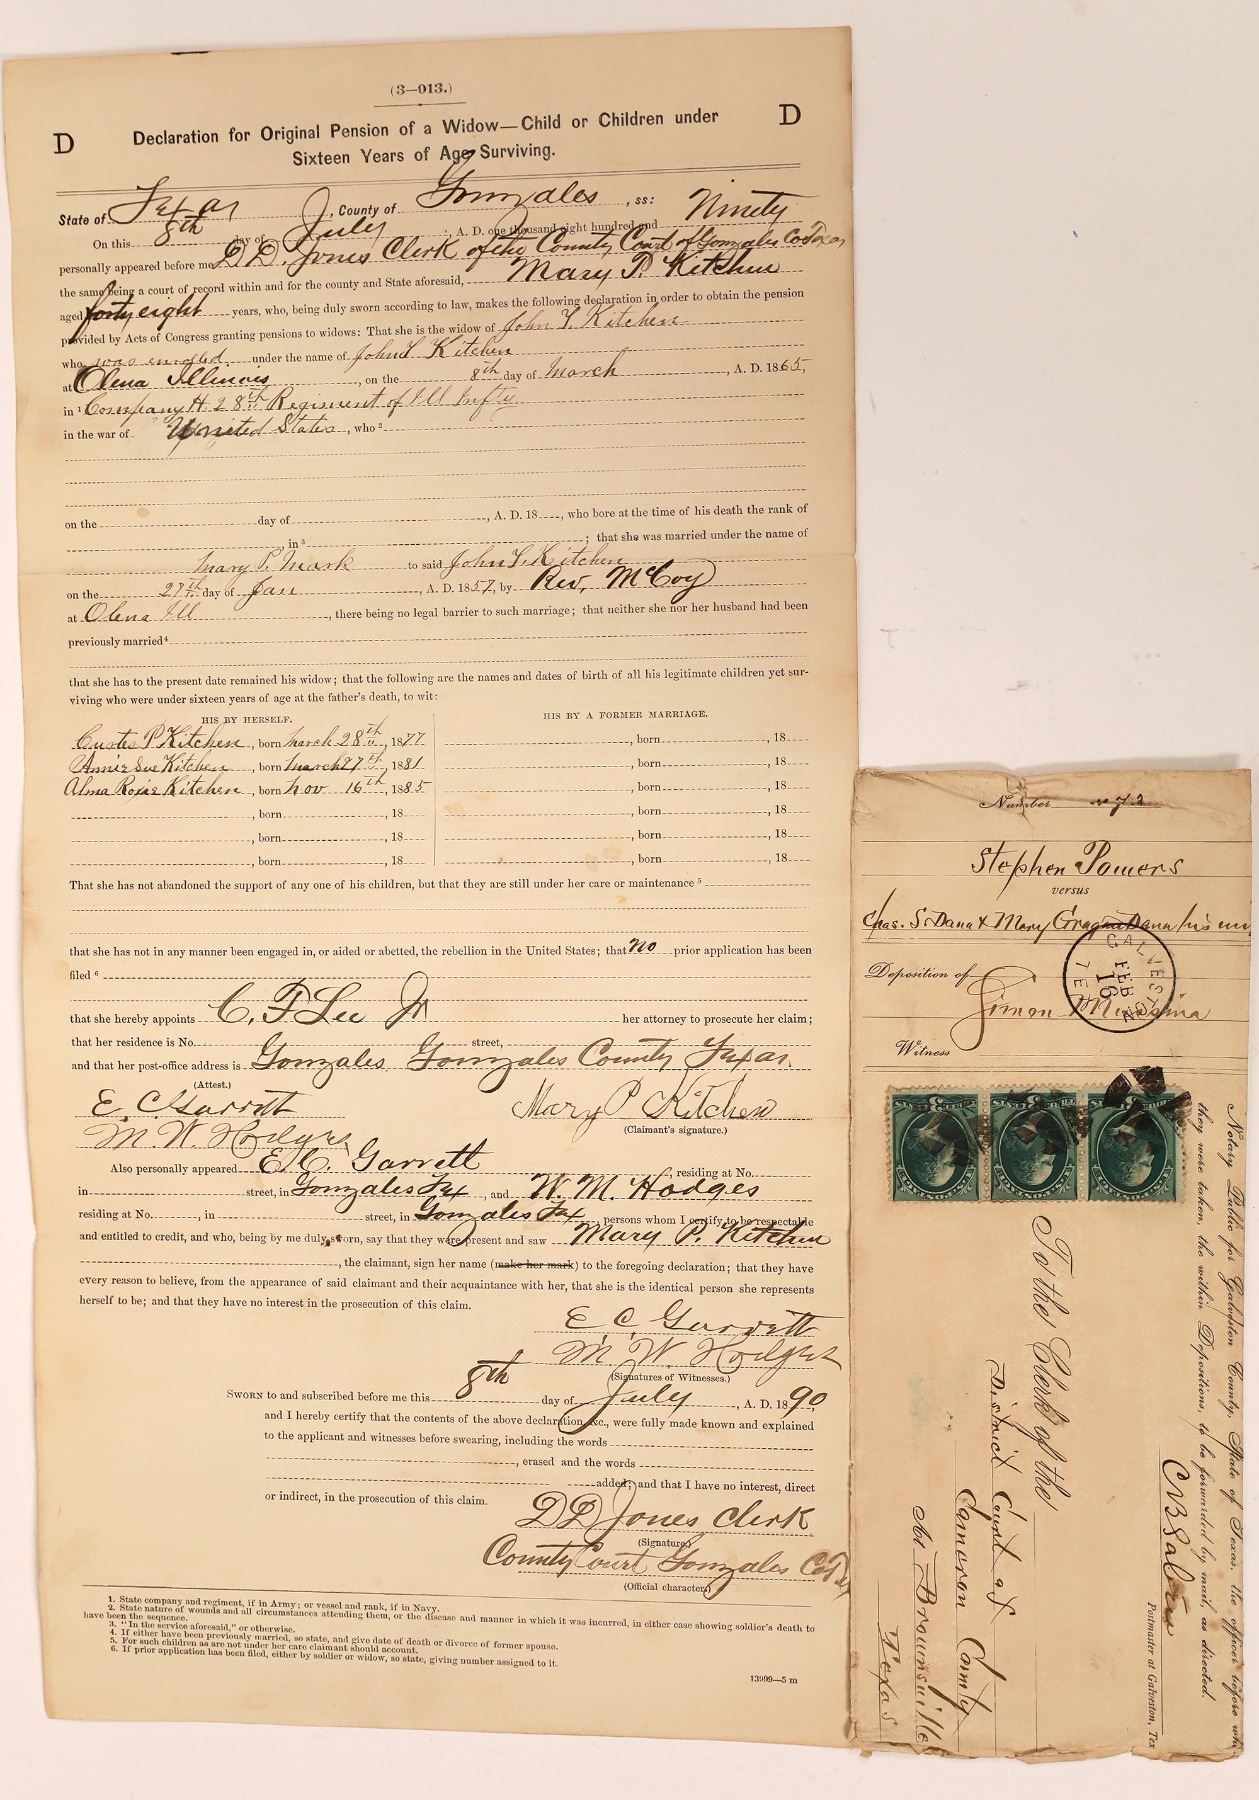 (3—013.)
D Declaration for Original Pension of a Widow—Child or Children under D
Sixteen Years of Age Surviving.
State of Texas, County of Gonzales, ss:
On this 8th day of July, A. D. one thousand eight hundred and Ninety
personally appeared before me D D. Jones Clerk of the County Court of Gonzales Co Texas
the same being a court of record within and for the county and State aforesaid, Mary P. Kitchen
aged forty eight years, who, being duly sworn according to law, makes the following declaration in order to obtain the pension
provided by Acts of Congress granting pensions to widows: That she is the widow of John L Kitchen
who was enrolled under the name of John L Kitchen
at Olena Illinois, on the 8th day of March, A. D. 1865,
in ¹ Company H. 28th Regiment of Ill Infty
in the war of United States, who ²
on the day of , A. D. 18 , who bore at the time of his death the rank of
, in ³ ; that she was married under the name of
Mary P. Mark to said John L. Kitchen
on the 27th day of Jan, A. D. 1857, by Rev, McCoy
at Olena Ill, there being no legal barrier to such marriage; that neither she nor her husband had been
previously married ⁴
that she has to the present date remained his widow; that the following are the names and dates of birth of all his legitimate children yet sur-
viving who were under sixteen years of age at the father's death, to wit:
HIS BY HERSELF. HIS BY A FORMER MARRIAGE.
Curtes P Kitchen, born March 28th, 1877 , born , 18
Annie Sue Kitchen, born March 27th, 1881 , born , 18
Alma Roxie Kitchen, born Nov 16th, 1885 , born , 18
, born , 18 , born , 18
, born , 18 , born , 18
, born , 18 , born , 18
That she has not abandoned the support of any one of his children, but that they are still under her care or maintenance ⁵
that she has not in any manner been engaged in, or aided or abetted, the rebellion in the United States; that no prior application has been
filed ⁶
that she hereby appoints C. F Lee Jr her attorney to prosecute her claim;
that her residence is No. street,
and that her post-office address is Gonzales Gonzales County Texas.
(Attest.)
E. C. Garrett Mary P Kitchen
M. W. Hodges (Claimant's signature.)
Also personally appeared E. C. Garrett residing at No.
in street, in Gonzales Tex, and W. M. Hodges
residing at No. , in street, in Gonzales Tex, persons whom I certify to be respectable
and entitled to credit, and who, being by me duly sworn, say that they were present and saw Mary P. Kitchen
, the claimant, sign her name (make her mark) to the foregoing declaration; that they have
every reason to believe, from the appearance of said claimant and their acquaintance with her, that she is the identical person she represents
herself to be; and that they have no interest in the prosecution of this claim.
E C Garrett
M. W. Hodges
(Signatures of Witnesses.)
SWORN to and subscribed before me this 8th day of July, A. D. 1890,
and I hereby certify that the contents of the above declaration, &c., were fully made known and explained
to the applicant and witnesses before swearing, including the words
, erased and the words
added; and that I have no interest, direct
or indirect, in the prosecution of this claim.
D D Jones Clerk
(Signature.)
County Court Gonzales Co Tex
(Official character.)
1. State company and regiment, if in Army; or vessel and rank, if in Navy.
2. State nature of wounds and all circumstances attending them, or the disease and manner in which it was incurred, in either case showing soldier's death to
have been the sequence.
3. "In the service aforesaid," or otherwise.
4. If either have been previously married, so state, and give date of death or divorce of former spouse.
5. For such children as are not under her care claimant should account.
6. If prior application has been filed, either by soldier or widow, so state, giving number assigned to it.
13999—5 m
Number 72
Stephen Powers
versus
Chas. S. Dana & Mary Dana his
Deposition of
Simon
Witness
GALVESTON TEX
FEB 16
Notary Public for Galveston County, State of Texas, the officer before
they were taken, the within Depositions, to be forwarded by mail, as directed.
Postmaster at Galveston, Tex
To the Clerk of the
District Court of
Cameron County
At Brownsville
Texas